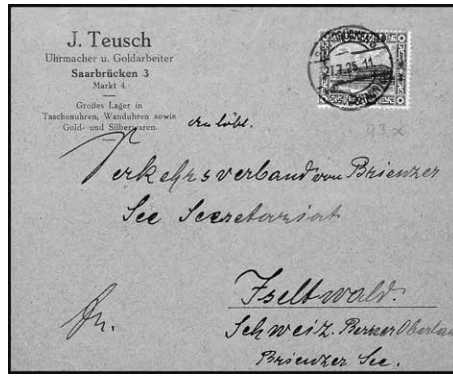 J. Teusch
Uhrmacher u. Goldarbeiter
Saarbrücken 3
Markt 4
Großes Lager in
Taschenuhren, Wanduhren sowie
Gold- und Silberwaren.
An löbl.
Verkehrsverband von Brienzer
See Secretariat
Iseltwald.
Schweiz. Berner Oberla
Brienzer See.
SAARBRÜCKEN
21.7.25. 11-